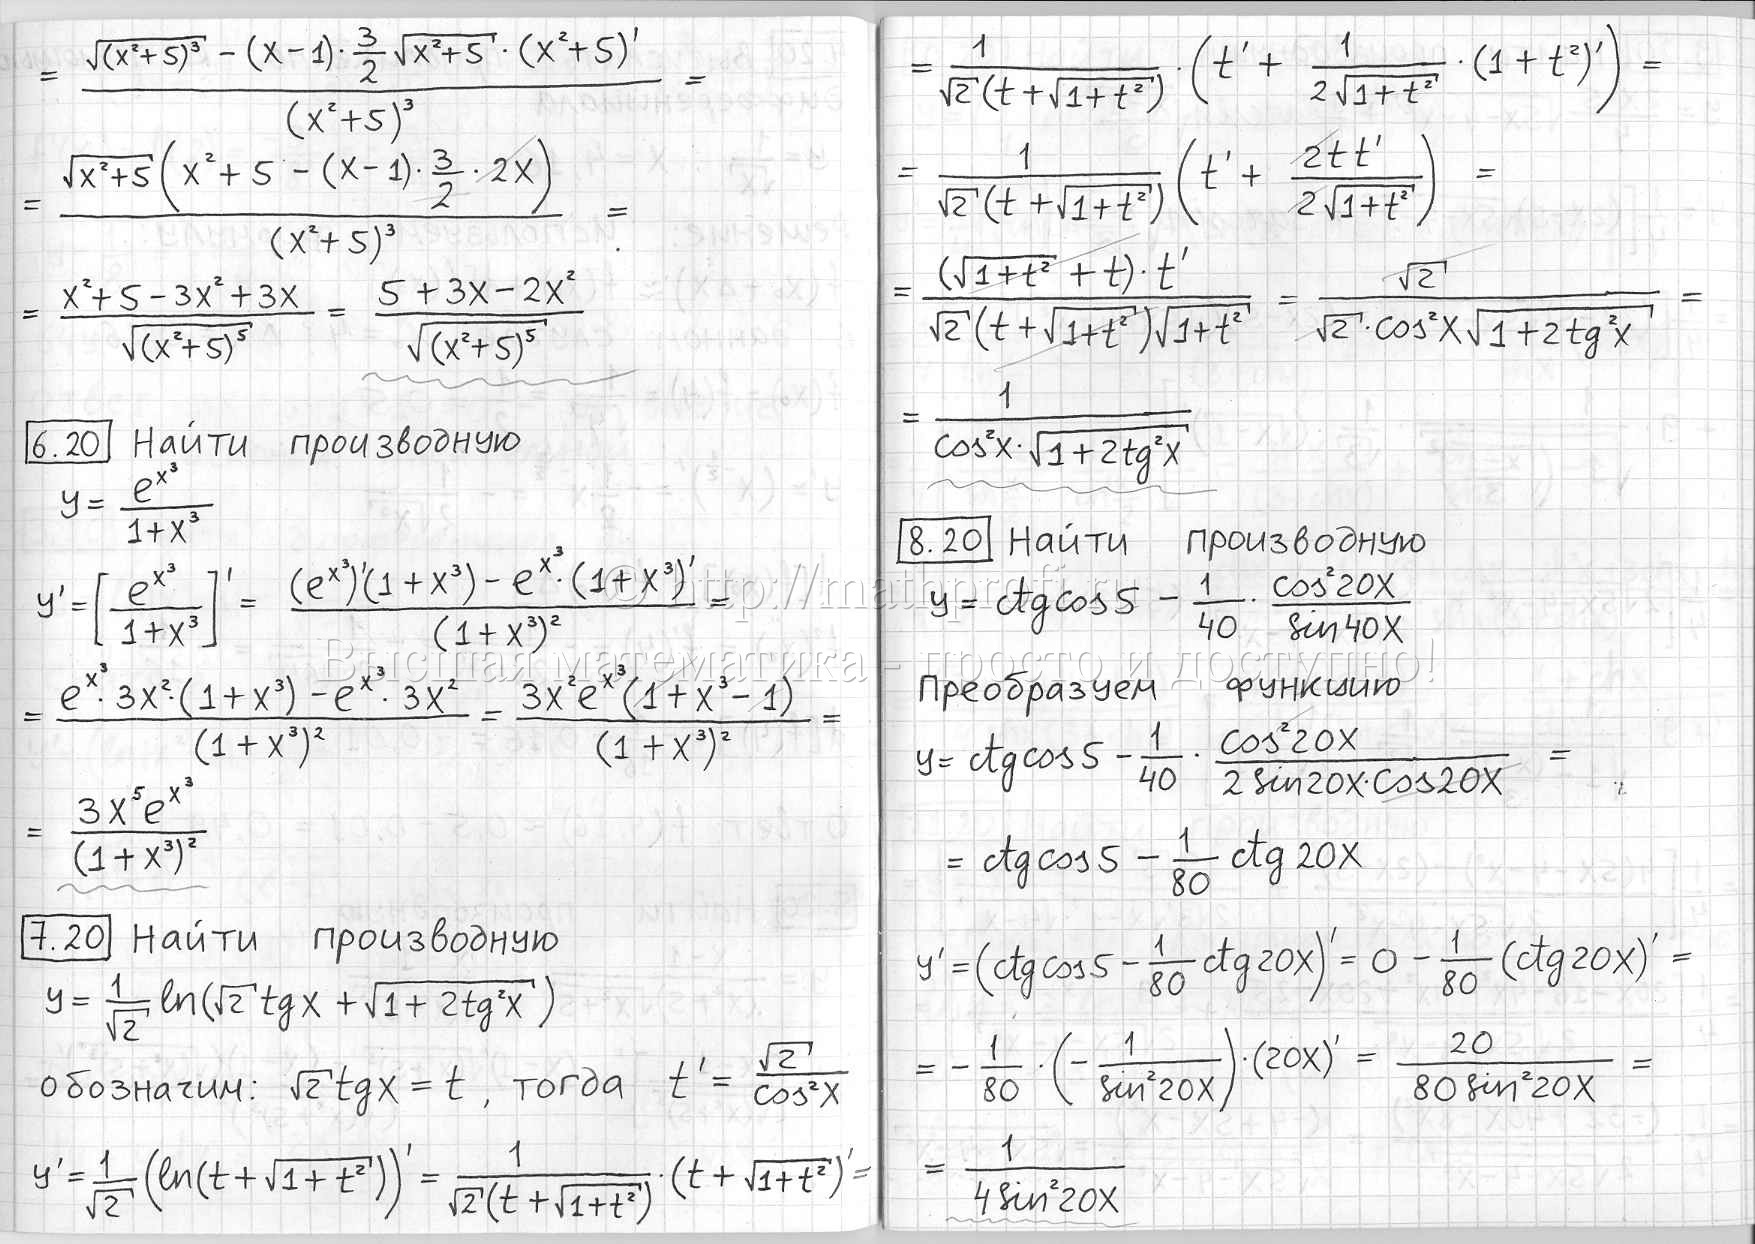 = (√(x²+5)³ − (x−1)·3/2 √(x²+5)·(x²+5)′) / (x²+5)³ =
= √(x²+5) (x²+5 − (x−1)·3/2·2x) / (x²+5)³ =
= (x²+5−3x²+3x) / √(x²+5)⁵ = (5+3x−2x²) / √(x²+5)⁵
6.20 Найти производную
y = e^(x³) / (1+x³)
y′ = [e^(x³) / (1+x³)]′ = ((e^(x³))′(1+x³) − e^(x³)·(1+x³)′) / (1+x³)² =
= (e^(x³)·3x²·(1+x³) − e^(x³)·3x²) / (1+x³)² = 3x²e^(x³)(1+x³−1) / (1+x³)² =
= 3x⁵e^(x³) / (1+x³)²
7.20 Найти производную
y = 1/√2 ln(√2 tgx + √(1+2tg²x))
обозначим: √2 tgx = t, тогда t′ = √2 / cos²x
y′ = 1/√2 (ln(t+√(1+t²)))′ = 1 / (√2(t+√(1+t²))) · (t+√(1+t²))′ =
= 1 / (√2(t+√(1+t²))) · (t′ + 1/(2√(1+t²)) · (1+t²)′) =
= 1 / (√2(t+√(1+t²))) (t′ + 2tt′ / (2√(1+t²))) =
= (√(1+t²)+t)·t′ / (√2(t+√(1+t²))√(1+t²)) = √2 / (√2·cos²x√(1+2tg²x)) =
= 1 / (cos²x·√(1+2tg²x))
8.20 Найти производную
y = ctgcos5 − 1/40 · cos²20x / sin40x
Преобразуем функцию
y = ctgcos5 − 1/40 · cos²20x / (2sin20x·cos20x) =
= ctgcos5 − 1/80 ctg20x
y′ = (ctgcos5 − 1/80 ctg20x)′ = 0 − 1/80 (ctg20x)′ =
= −1/80 · (−1/sin²20x)·(20x)′ = 20 / (80sin²20x) =
= 1 / (4sin²20x)
© http://mathprofi.ru
Высшая математика - просто и доступно!